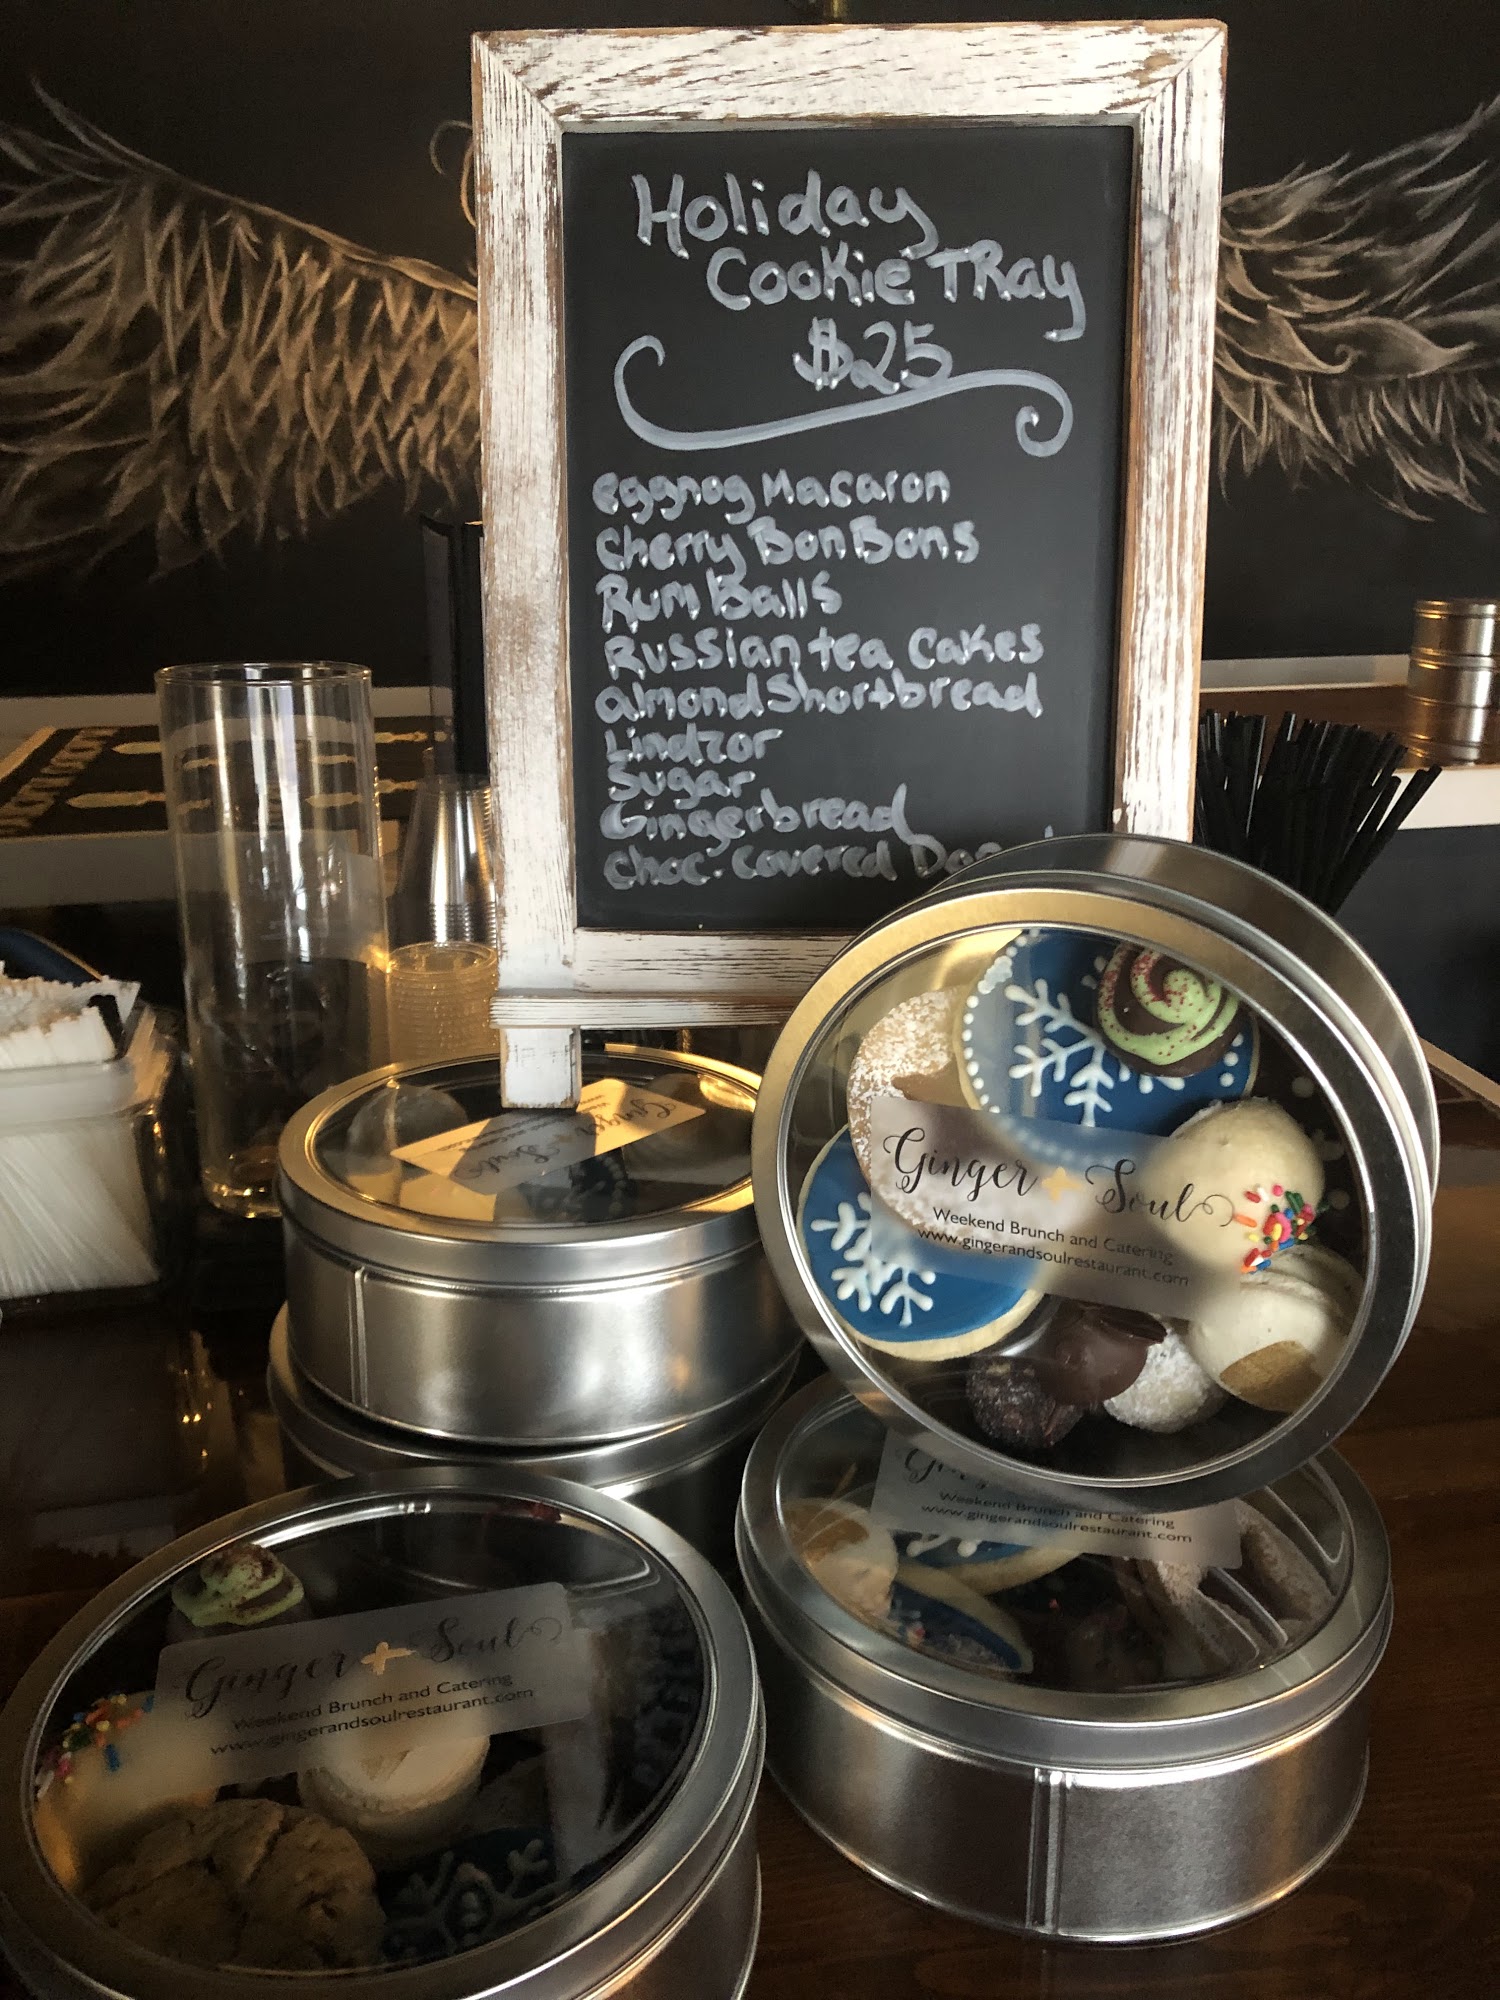 Holiday
Cookie TRay
$25
eggnog Macaron
Cherry BonBons
Rum Balls
Russian tea Cakes
almond Shortbread
Lindzor
Sugar
Gingerbread
Choc. covered
Ginger + Soul
www.
Ginger + Soul
Weekend Brunch and Catering
www.gingerandsoulrestaurant.com
Weekend Brunch and Catering
www.gingerandsoulrestaurant.com
Ginger + Soul
Weekend Brunch and Catering
www.gingerandsoulrestaurant.com